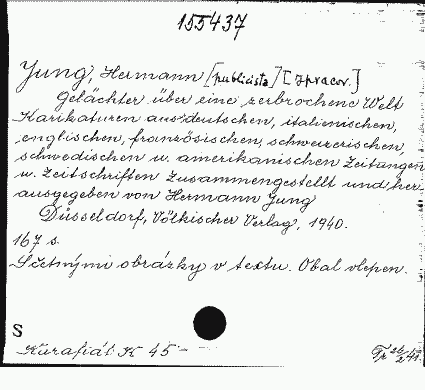 155437
Jung, Hermann [publicista] [zpracov.]
Gelächter über eine zerbrochene Welt
Karikaturen aus deutschen, italienischen,
englischen, französischen, schweizerischen,
schwedischen u. amerikanischen Zeitungen
u. Zeitschriften zusammengestellt und her-
ausgegeben von Hermann Jung
Düsseldorf, Völkischer Verlag, 1940.
167 s.
Sčetnými obrázky v textu. Obal vlepen.
S
Karafiát K 45 -